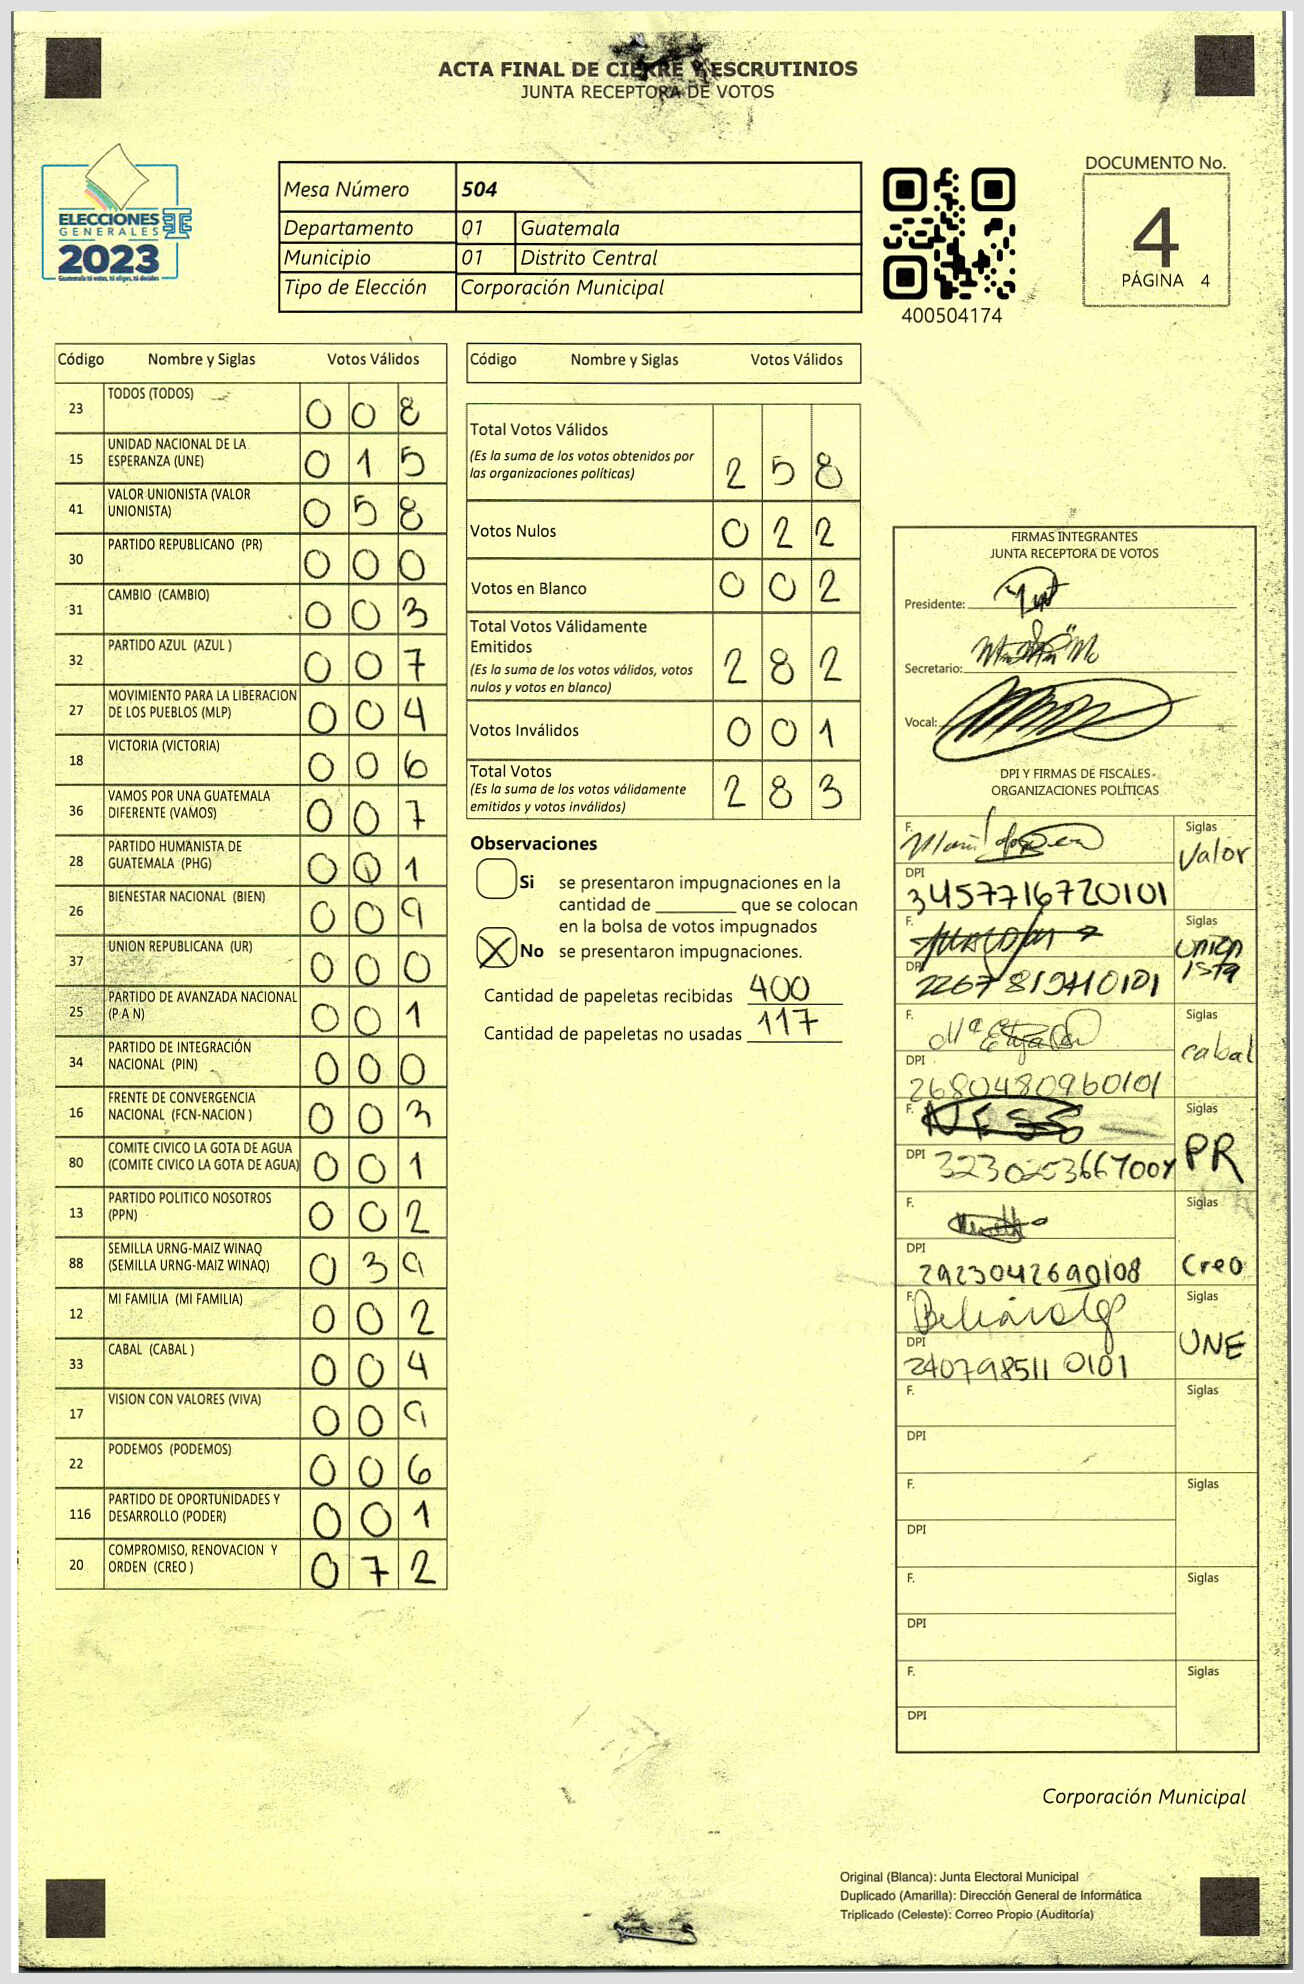 ACTA FINAL DE CIERRE Y ESCRUTINIOS
JUNTA RECEPTORA DE VOTOS
ELECCIONES
GENERALES
2023
Mesa Número 504
Departamento 01 Guatemala
Municipio 01 Distrito Central
Tipo de Elección Corporación Municipal
400504174
DOCUMENTO No.
4
PÁGINA 4
Código Nombre y Siglas Votos Válidos
23 TODOS (TODOS) 0 0 8
15 UNIDAD NACIONAL DE LA
ESPERANZA (UNE) 0 1 5
41 VALOR UNIONISTA (VALOR
UNIONISTA) 0 5 8
30 PARTIDO REPUBLICANO (PR) 0 0 0
31 CAMBIO (CAMBIO) 0 0 3
32 PARTIDO AZUL (AZUL ) 0 0 7
27 MOVIMIENTO PARA LA LIBERACION
DE LOS PUEBLOS (MLP) 0 0 4
18 VICTORIA (VICTORIA) 0 0 6
36 VAMOS POR UNA GUATEMALA
DIFERENTE (VAMOS) 0 0 7
28 PARTIDO HUMANISTA DE
GUATEMALA (PHG) 0 0 1
26 BIENESTAR NACIONAL (BIEN) 0 0 9
37 UNION REPUBLICANA (UR) 0 0 0
25 PARTIDO DE AVANZADA NACIONAL
(P A N) 0 0 1
34 PARTIDO DE INTEGRACIÓN
NACIONAL (PIN) 0 0 0
16 FRENTE DE CONVERGENCIA
NACIONAL (FCN-NACION ) 0 0 3
80 COMITE CIVICO LA GOTA DE AGUA
(COMITE CIVICO LA GOTA DE AGUA) 0 0 1
13 PARTIDO POLITICO NOSOTROS
(PPN) 0 0 2
88 SEMILLA URNG-MAIZ WINAQ
(SEMILLA URNG-MAIZ WINAQ) 0 3 9
12 MI FAMILIA (MI FAMILIA) 0 0 2
33 CABAL (CABAL ) 0 0 4
17 VISION CON VALORES (VIVA) 0 0 9
22 PODEMOS (PODEMOS) 0 0 6
116 PARTIDO DE OPORTUNIDADES Y
DESARROLLO (PODER) 0 0 1
20 COMPROMISO, RENOVACION Y
ORDEN (CREO ) 0 7 2
Código Nombre y Siglas Votos Válidos
Total Votos Válidos
(Es la suma de los votos obtenidos por
las organizaciones políticas) 2 5 8
Votos Nulos 0 2 2
Votos en Blanco 0 0 2
Total Votos Válidamente
Emitidos
(Es la suma de los votos válidos, votos
nulos y votos en blanco) 2 8 2
Votos Inválidos 0 0 1
Total Votos
(Es la suma de los votos válidamente
emitidos y votos inválidos) 2 8 3
Observaciones
Si se presentaron impugnaciones en la
cantidad de ________ que se colocan
en la bolsa de votos impugnados
X No se presentaron impugnaciones.
Cantidad de papeletas recibidas 400
Cantidad de papeletas no usadas 117
FIRMAS INTEGRANTES
JUNTA RECEPTORA DE VOTOS
Presidente:
Secretario:
Vocal:
DPI Y FIRMAS DE FISCALES
ORGANIZACIONES POLÍTICAS
F. Siglas
Valor
DPI
3457716720101
F. Siglas
Unionista
DPI
2267819410101
F. Siglas
cabal
DPI
2680480960101
F. Siglas
PR
DPI
F. Siglas
Creo
DPI
2923042690108
F. Siglas
UNE
DPI
2407985110101
F. Siglas
DPI
F. Siglas
DPI
F. Siglas
DPI
F. Siglas
DPI
Corporación Municipal
Original (Blanca): Junta Electoral Municipal
Duplicado (Amarilla): Dirección General de Informática
Triplicado (Celeste): Correo Propio (Auditoría)